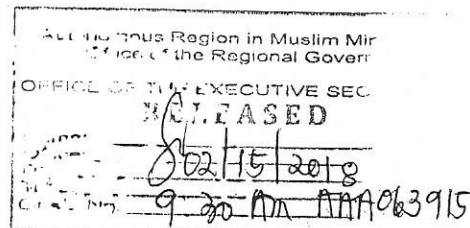 Region in Muslim Mir
of the Regional Govern
OFFICE OF THE EXECUTIVE SEC
RELEASED
02/15/2018
9 30 Am AAA063915